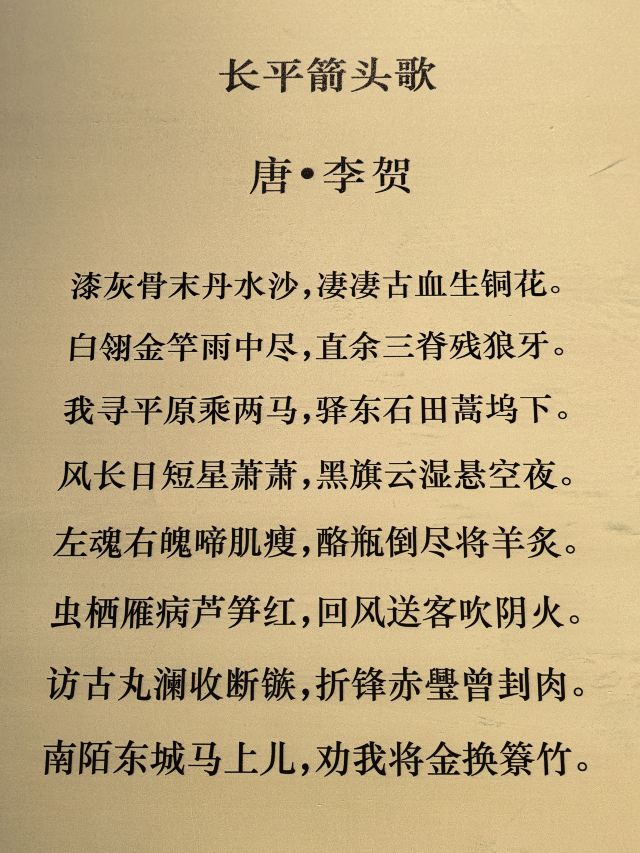 长平箭头歌
唐·李贺
漆灰骨末丹水沙,凄凄古血生铜花。
白翎金竿雨中尽,直余三脊残狼牙。
我寻平原乘两马,驿东石田蒿坞下。
风长日短星萧萧,黑旗云湿悬空夜。
左魂右魄啼肌瘦,酪瓶倒尽将羊炙。
虫栖雁病芦笋红,回风送客吹阴火。
访古丸澜收断镞,折锋赤璺曾封肉。
南陌东城马上儿,劝我将金换簝竹。